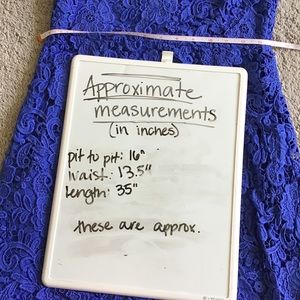 Approximate
measurements
(in inches)
pit to pit: 16"
Waist: 13.5"
Length: 35"
these are approx.